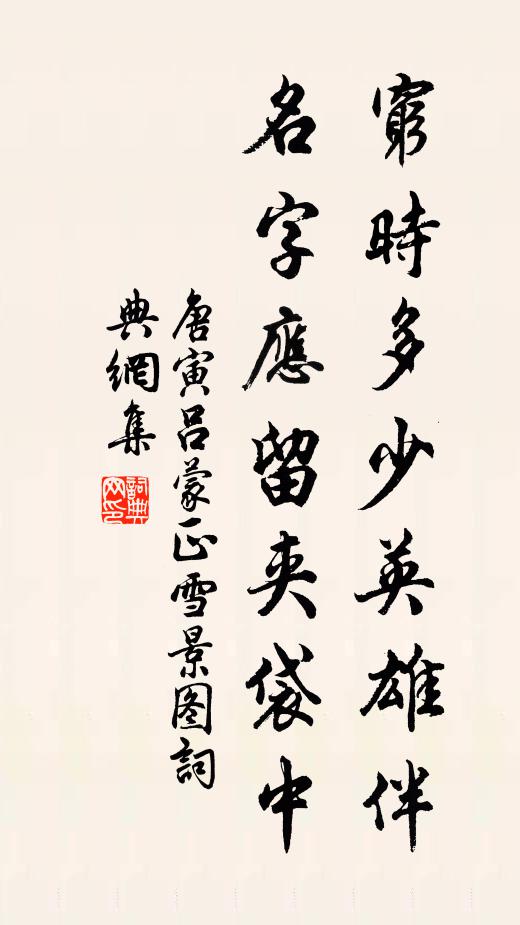 窮時多少英雄伴
名字應留夾袋中
唐寅吕蒙正雪景图詞
典網集
詞典
网印